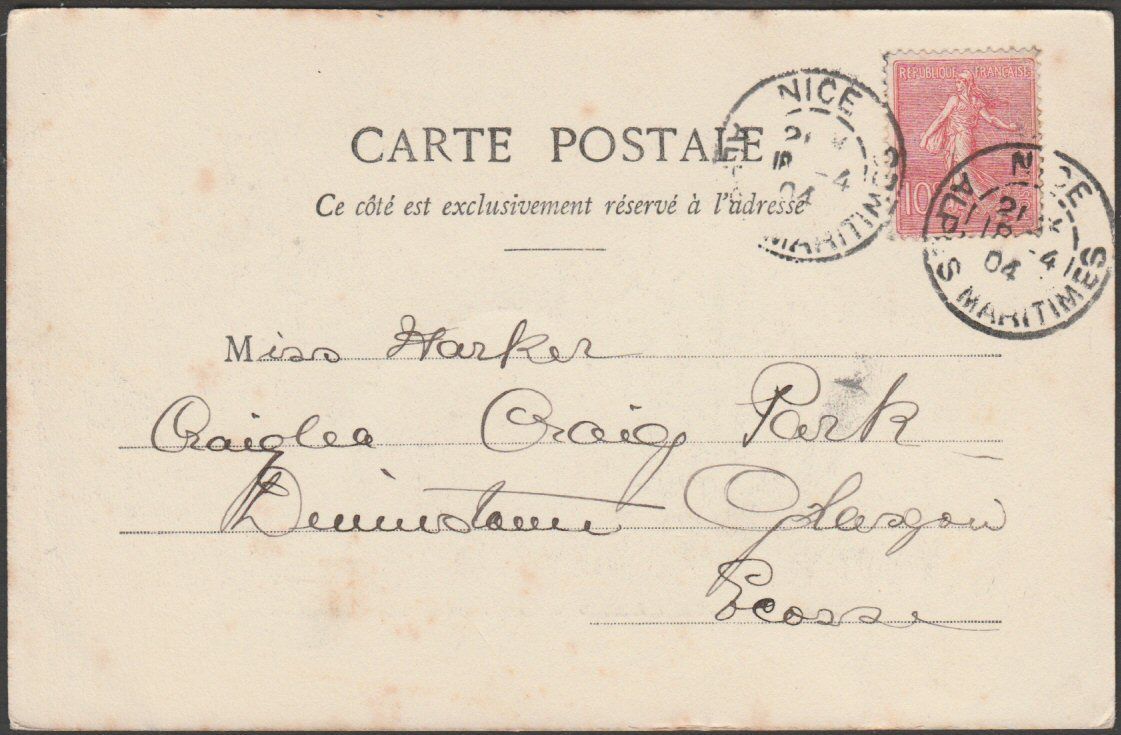 CARTE POSTALE
Ce côté est exclusivement réservé à l'adresse
RÉPUBLIQUE FRANÇAISE
10
NICE
21
18 -4
04
ALPES MARITIMES
NICE
21
18 -4
04
ALPES MARITIMES
Miss Harker
Craiglea Craig Park
Dennistoun Glasgow
Ecosse